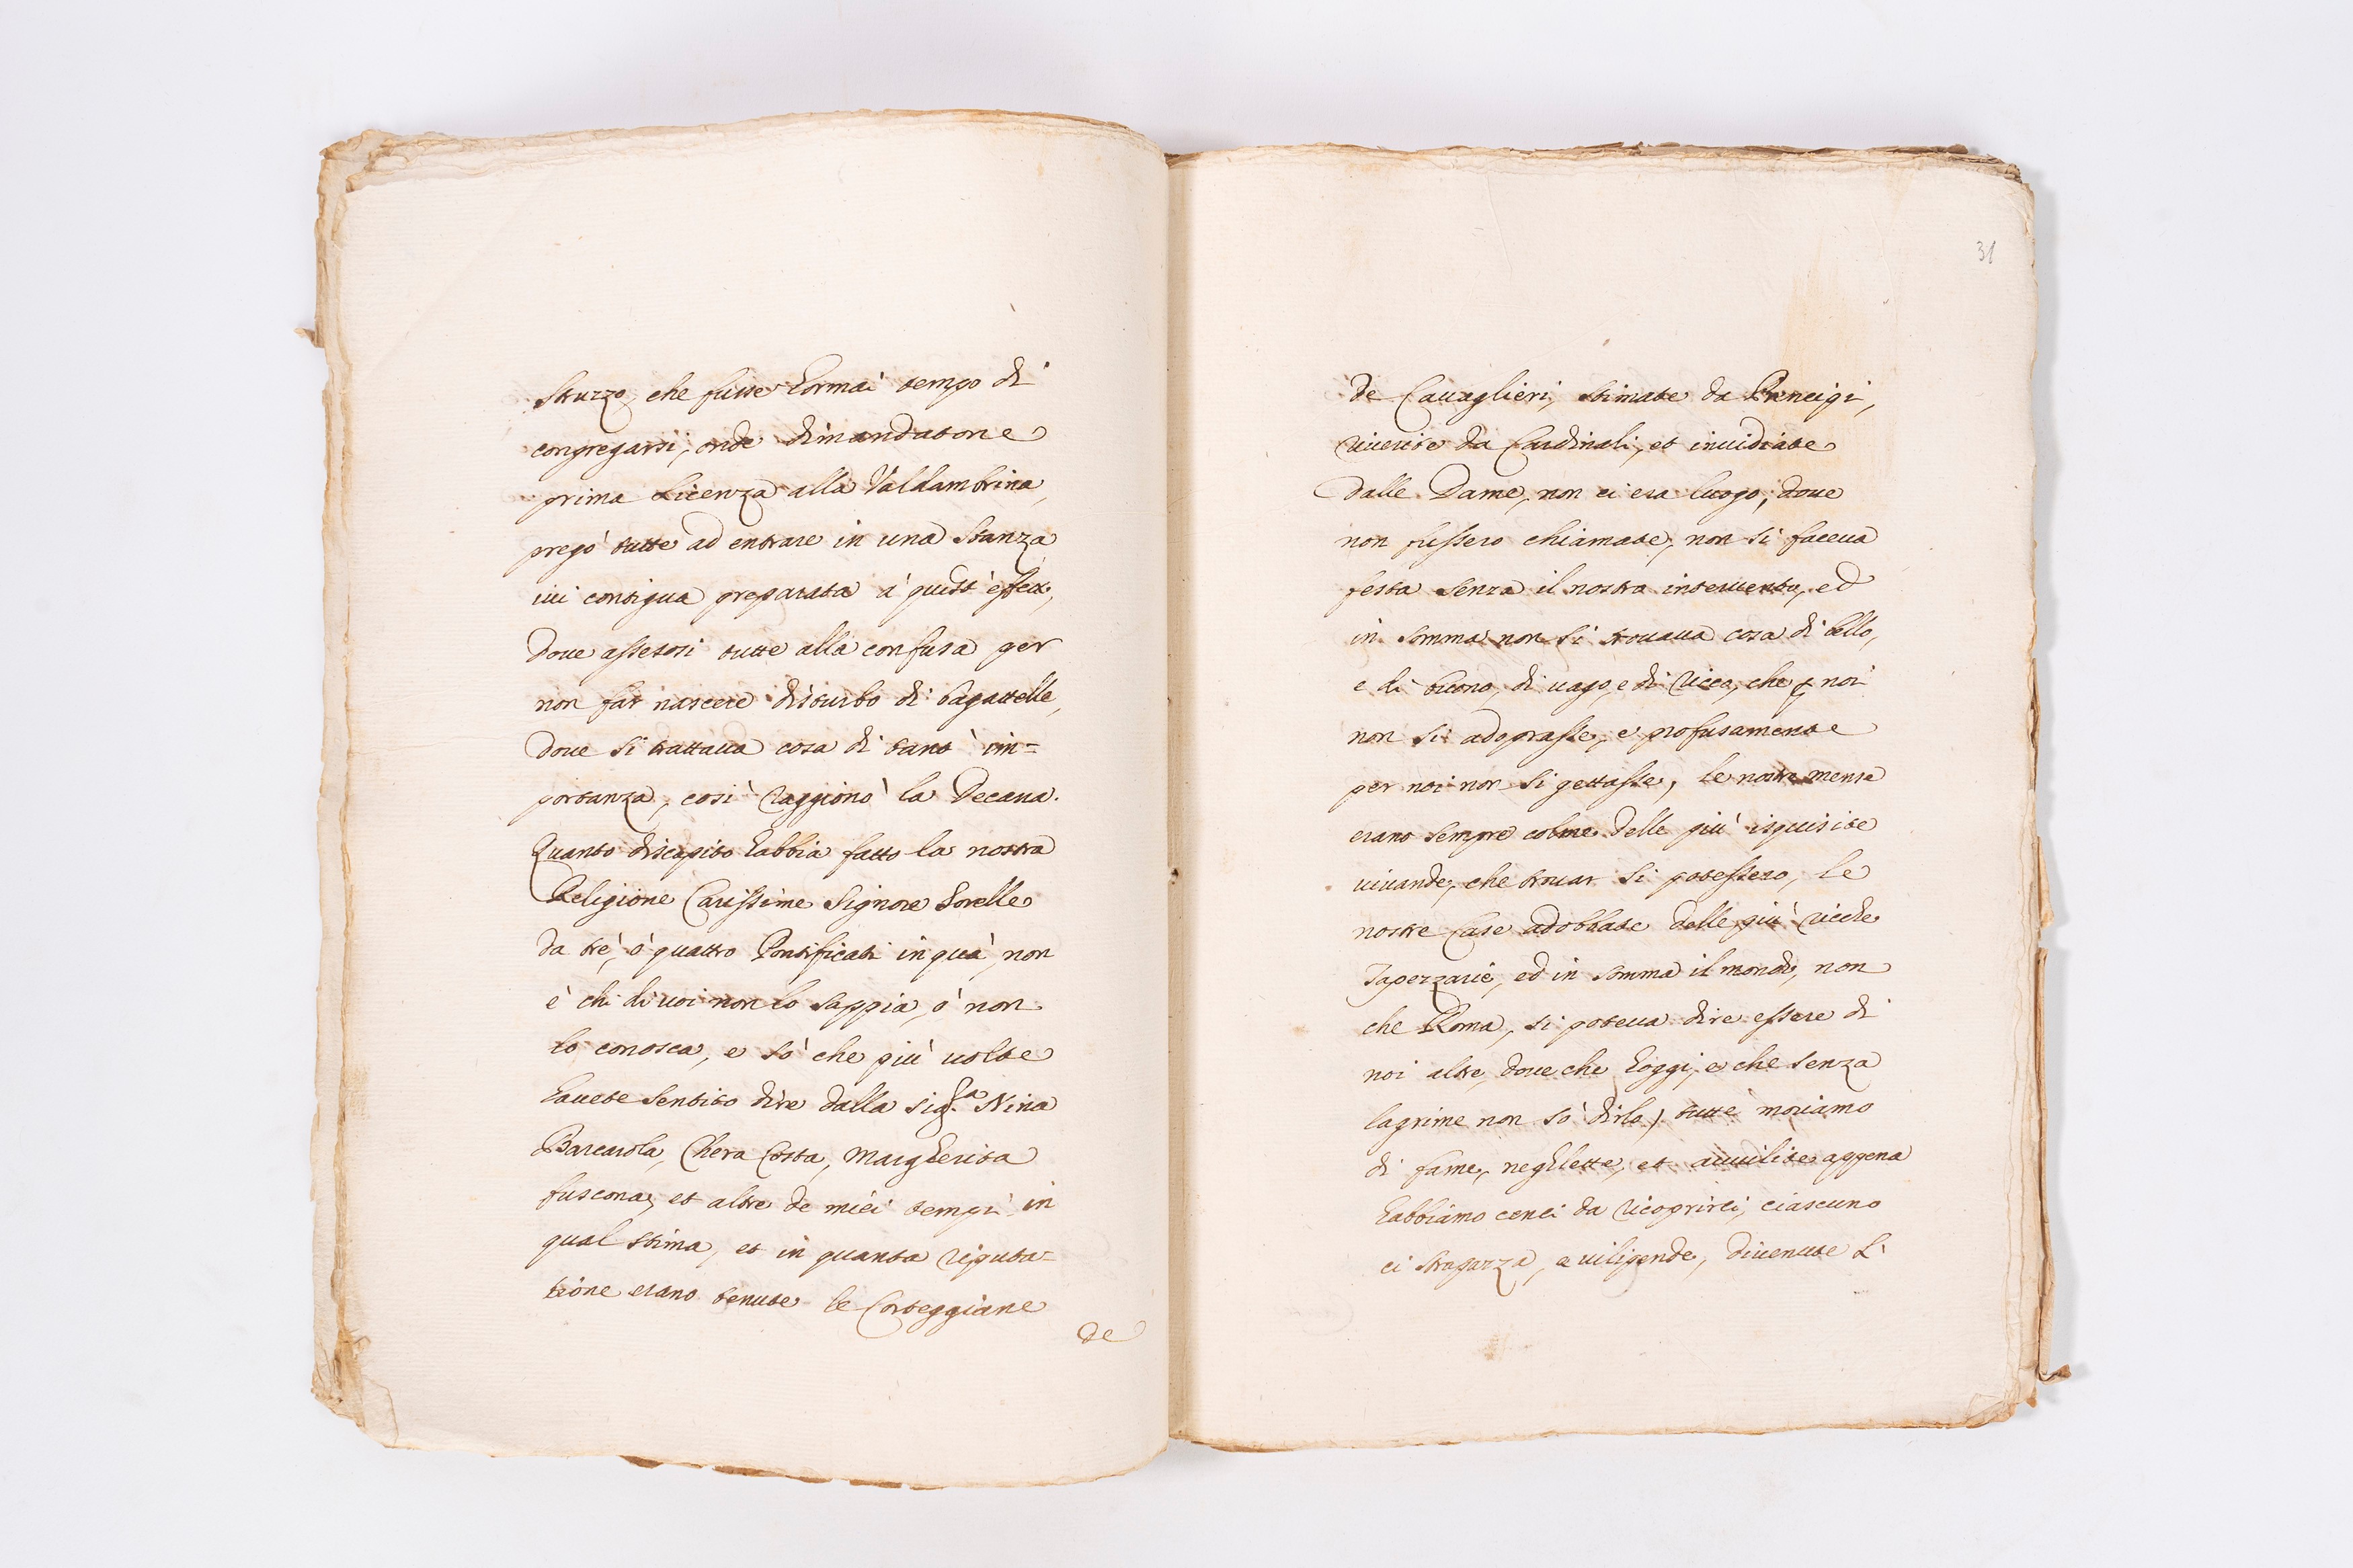 Struzzo, che fusse hormai tempo di
congregarsi, onde dimandatone
prima Licenza alla Valdambrina,
pregò tutte ad entrare in una Stanza
iui contigua preparata à quest'effetto,
doue assetosi tutte alla confusa per
non far nascere disturbo di bagattelle,
doue si trattaua cosa di tant'im=
portanza, così raggionò la Decana.
Quanto discapito habbia fatto la nostra
Religione Carissime Signore Sorelle
da trè, ò quattro Pontificati in quà, non
è chi di uoi non lo sappia, ò non
lo conosca, e sò che più uolte
hauete sentito dire dalla Sig.ra Nina
Barcarola, Chera Costa, Margherita
fuscona, et altre de miei tempi in
qual stima, et in quanta riputa=
tione erano tenute le Corteggiane
de
31
de Cauaglieri, stimate da Prencipi,
riuerite da Cardinali, et inuidiate
dalle Dame, non ci era luogo, doue
non fussero chiamate, non si faceua
festa senza il nostro interuento, ed
in somma non si trouaua cosa di bello,
e di buono, di uago, e di ricco, che p noi
non si adoprasse, e profusamente
per noi non si gettasse, le nostre mense
erano sempre colme delle più isquisite
uiuande, che trouar si potessero, le
nostre Case adobbate delle più ricche
Tapezzarie, ed in somma il mondo, non
che Roma, si poteua dire essere di
noi altre, doue che hoggi, e che senza
lagrime non sò dirlo) tutte moriamo
di fame, neghlette, et auuilite appena
habbiamo cenci da ricoprirci, ciascuno
ci strapazza, e uilipende, diuenute Li